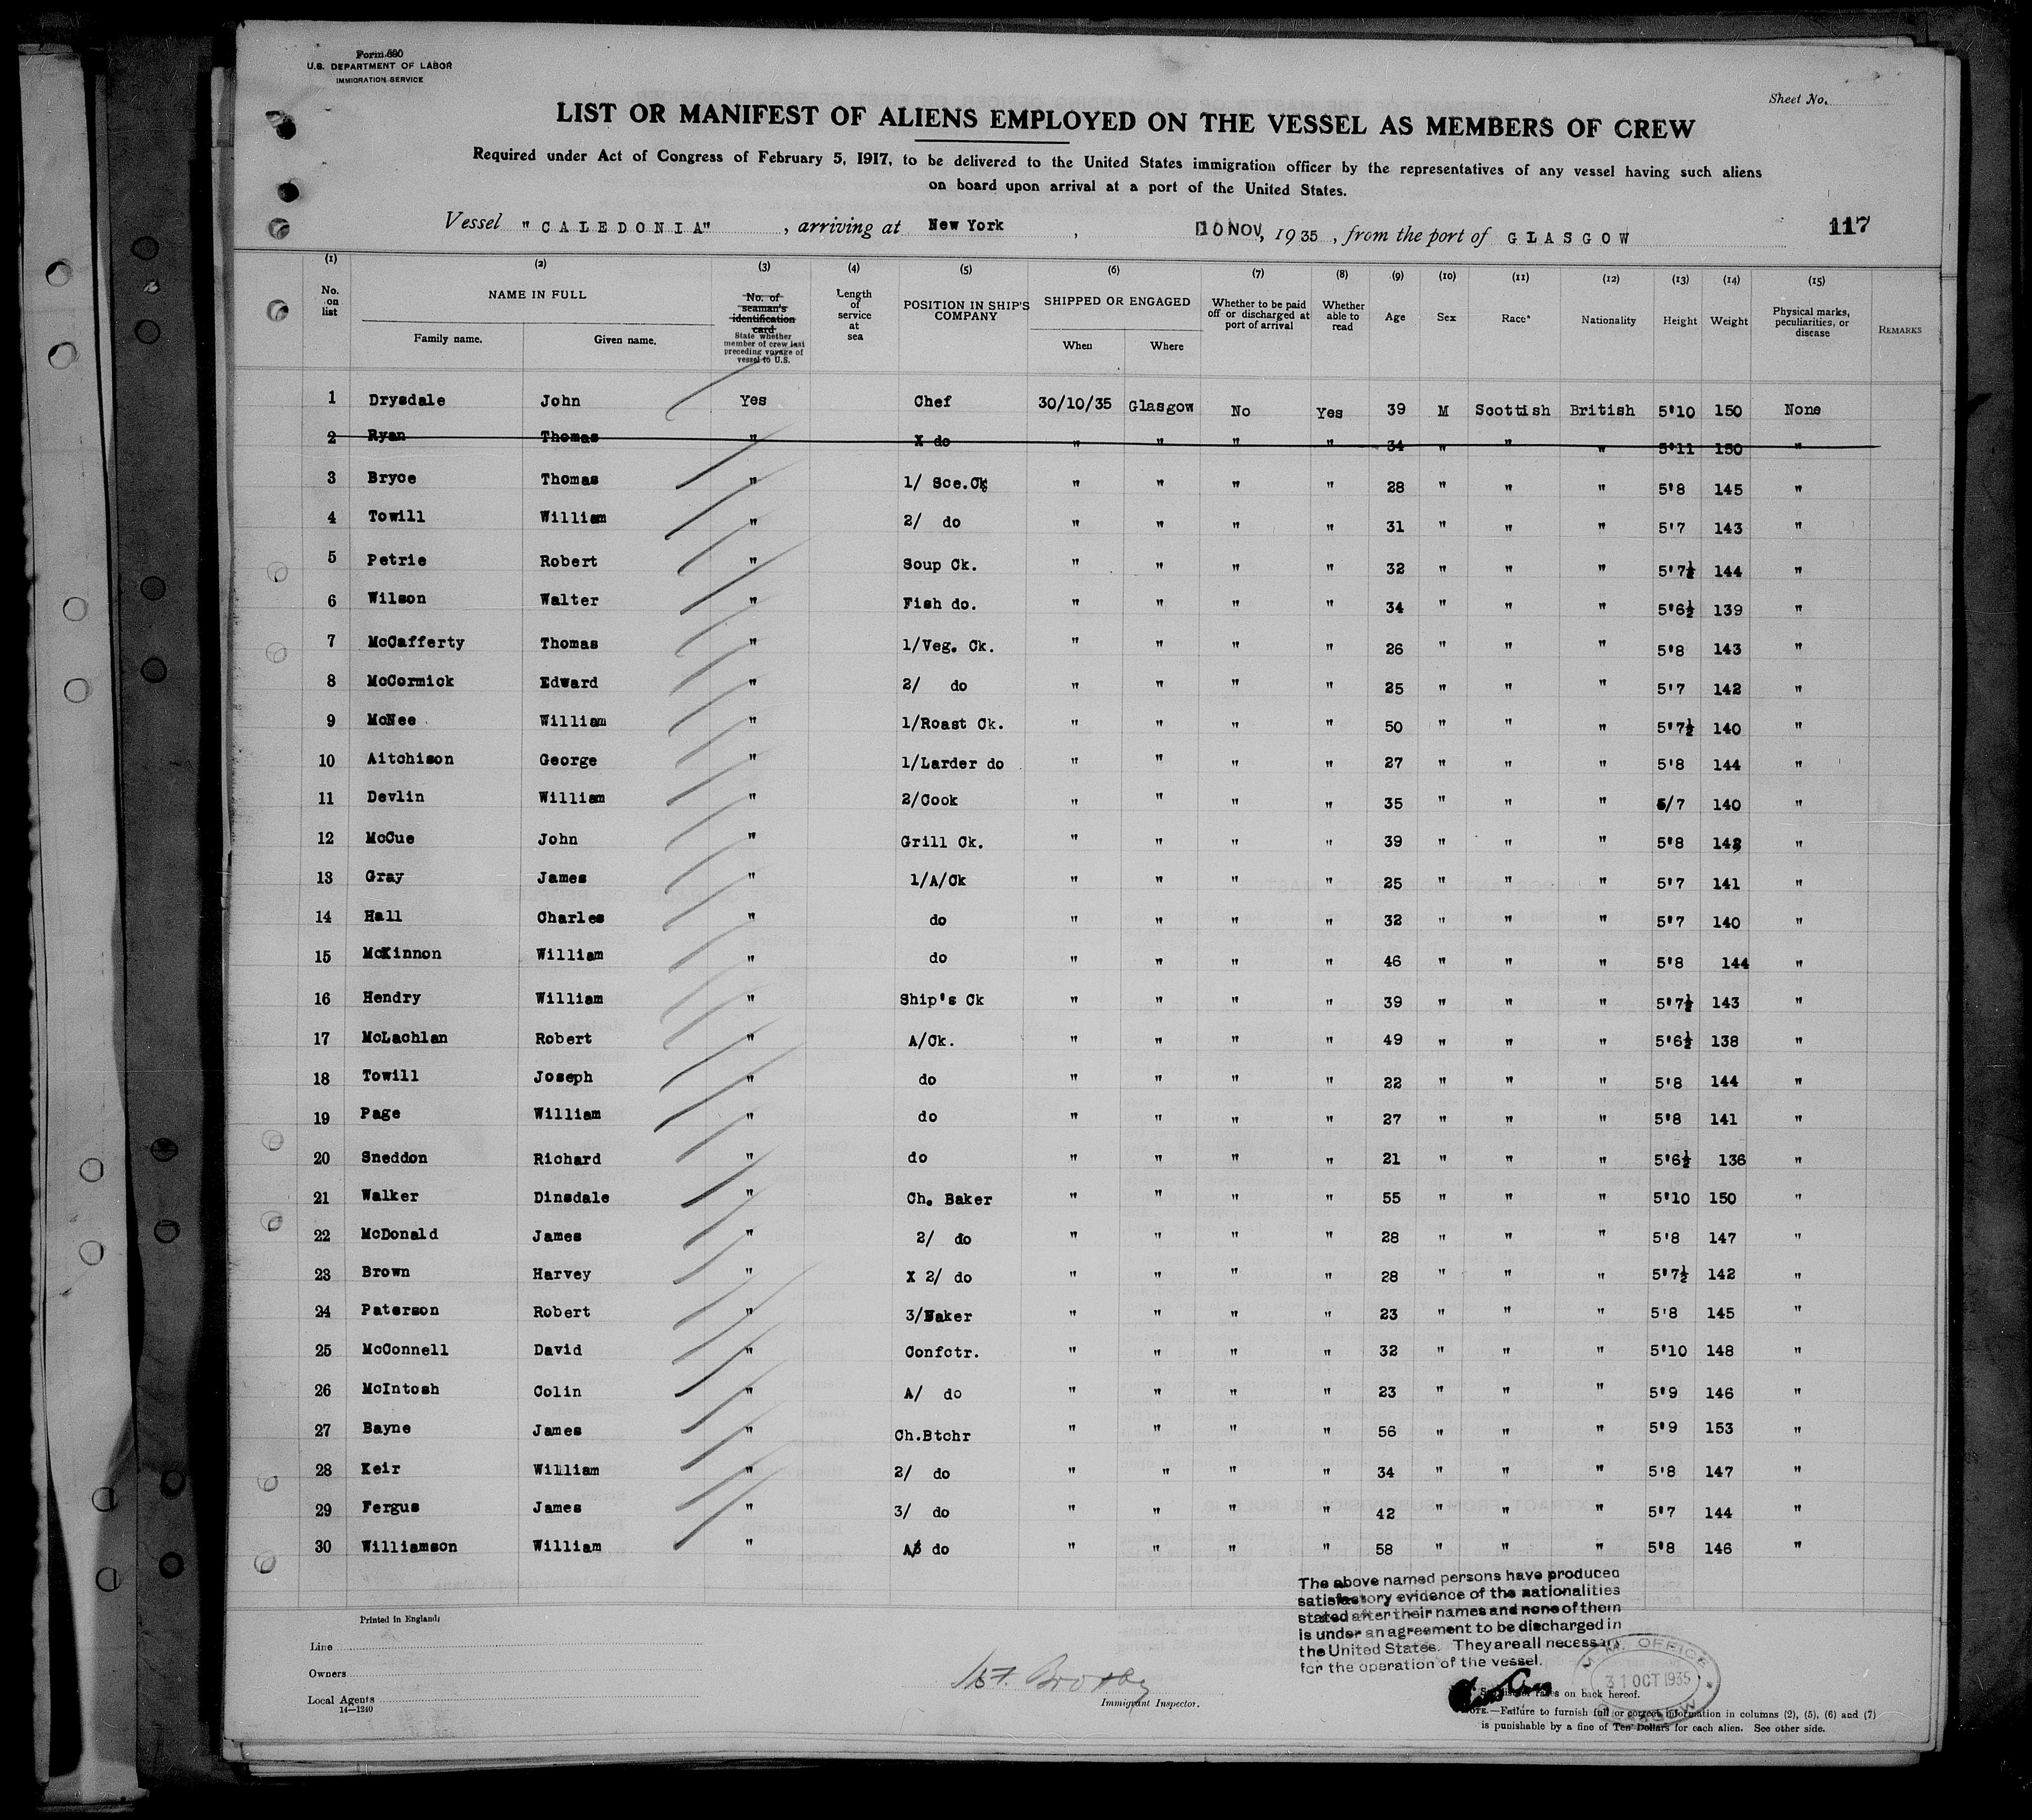 Form 680
U.S. DEPARTMENT OF LABOR
IMMIGRATION SERVICE
Sheet No.
LIST OR MANIFEST OF ALIENS EMPLOYED ON THE VESSEL AS MEMBERS OF CREW
Required under Act of Congress of February 5, 1917, to be delivered to the United States immigration officer by the representatives of any vessel having such aliens
on board upon arrival at a port of the United States.
Vessel "CALEDONIA", arriving at New York, 10 NOV, 1935, from the port of GLASGOW
117
(1) (2) (3) (4) (5) (6) (7) (8) (9) (10) (11) (12) (13) (14) (15)
No. on list NAME IN FULL Family name. Given name. No. of seaman's identification card State whether member of crew last preceding voyage of vessel to U.S. Length of service at sea POSITION IN SHIP'S COMPANY SHIPPED OR ENGAGED When Where Whether to be paid off or discharged at port of arrival Whether able to read Age Sex Race* Nationality Height Weight Physical marks, peculiarities, or disease REMARKS
1 Drysdale John Yes Chef 30/10/35 Glasgow No Yes 39 M Scottish British 5'10 150 None
2 Ryan Thomas " X do " " " " 34 " " " 5'11 150 "
3 Bryce Thomas " 1/ Sce.Ck " " " " 28 " " " 5'8 145 "
4 Towill William " 2/ do " " " " 31 " " " 5'7 143 "
5 Petrie Robert " Soup Ck. " " " " 32 " " " 5'7½ 144 "
6 Wilson Walter " Fish do. " " " " 34 " " " 5'6½ 139 "
7 McCafferty Thomas " 1/Veg. Ck. " " " " 26 " " " 5'8 143 "
8 McCormick Edward " 2/ do " " " " 25 " " " 5'7 142 "
9 McNee William " 1/Roast Ck. " " " " 50 " " " 5'7½ 140 "
10 Aitchison George " 1/Larder do " " " " 27 " " " 5'8 144 "
11 Devlin William " 2/Cook " " " " 35 " " " 5/7 140 "
12 McCue John " Grill Ck. " " " " 39 " " " 5'8 142 "
13 Gray James " 1/A/Ck " " " " 25 " " " 5'7 141 "
14 Hall Charles " do " " " " 32 " " " 5'7 140 "
15 McKinnon William " do " " " " 46 " " " 5'8 144 "
16 Hendry William " Ship's Ck " " " " 39 " " " 5'7½ 143 "
17 McLachlan Robert " A/Ck. " " " " 49 " " " 5'6½ 138 "
18 Towill Joseph " do " " " " 22 " " " 5'8 144 "
19 Page William " do " " " " 27 " " " 5'8 141 "
20 Sneddon Richard " do " " " " 21 " " " 5'6½ 136 "
21 Walker Dinsdale " Ch. Baker " " " " 55 " " " 5'10 150 "
22 McDonald James " 2/ do " " " " 28 " " " 5'8 147 "
23 Brown Harvey " X 2/ do " " " " 28 " " " 5'7½ 142 "
24 Paterson Robert " 3/Baker " " " " 23 " " " 5'8 145 "
25 McConnell David " Confctr. " " " " 32 " " " 5'10 148 "
26 McIntosh Colin " A/ do " " " " 23 " " " 5'9 146 "
27 Bayne James " Ch.Btchr " " " " 56 " " " 5'9 153 "
28 Keir William " 2/ do " " " " 34 " " " 5'8 147 "
29 Fergus James " 3/ do " " " " 42 " " " 5'7 144 "
30 Williamson William " A/ do " " " " 58 " " " 5'8 146 "
The above named persons have produced
satisfactory evidence of the nationalities
stated after their names and none of them
is under an agreement to be discharged in
the United States. They are all necessary
for the operation of the vessel.
Printed in England.
Line
Owners
Local Agents
14—1240
Immigrant Inspector.
OFFICE
31 OCT 1935
races on back hereof.
NOTE.—Failure to furnish full or correct information in columns (2), (5), (6) and (7)
is punishable by a fine of Ten Dollars for each alien. See other side.